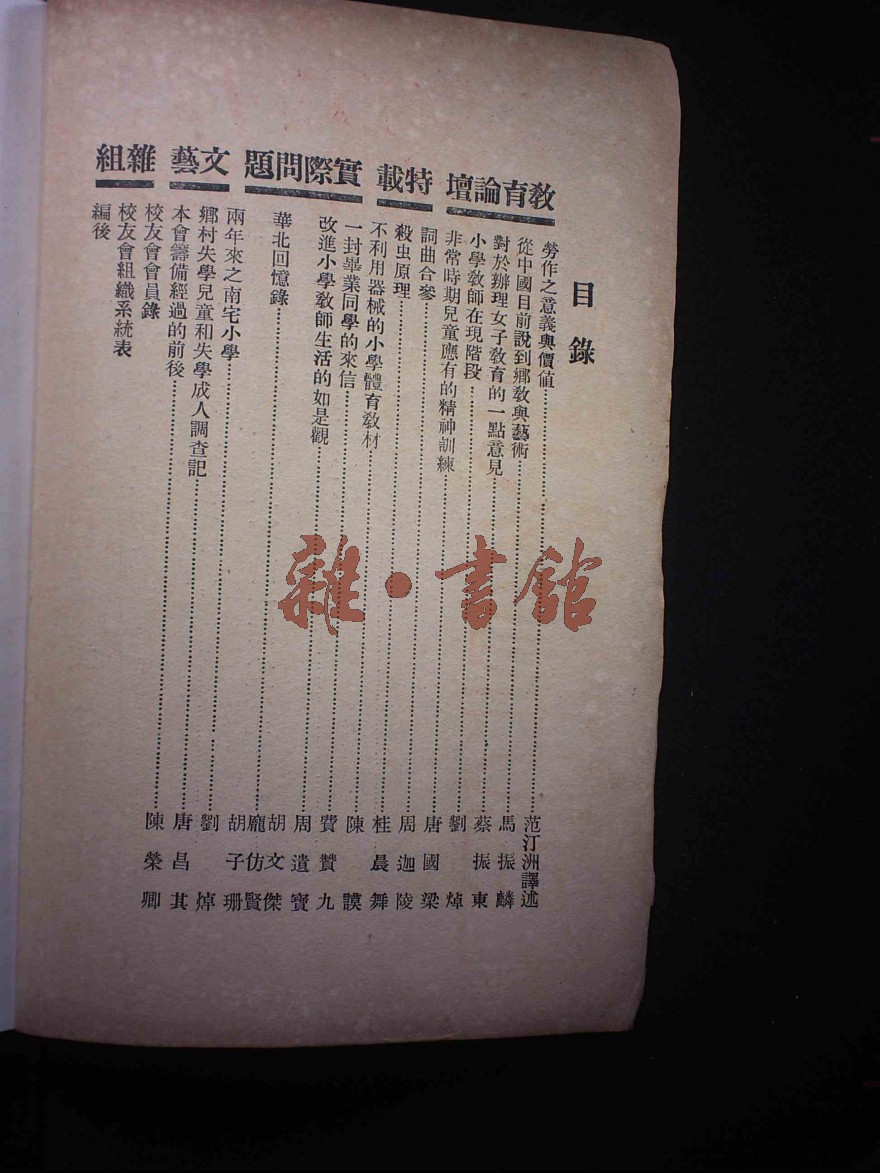 目錄
教育論壇
勞作之意義與價值 范汀洲譯述
從中國目前說到鄉教與藝術 馬振麟
對於辦理女子教育的一點意見 蔡振東
小學教師在現階段 劉焯
非常時期兒童應有的精神訓練 唐國梁
特載
詞曲合參 周迦陵
殺虫原理 桂晨舞
實際問題
不利用器械的小學體育教材 陳謨
一封畢業同學的來信 費贊九
改進小學教師生活的如是觀 周遺寶
文藝
華北回憶錄 胡文傑 龐仿賢
兩年來之南宅小學 胡子珊
鄉村失學兒童和失學成人調查記 劉焯
雜組
本會籌備經過的前後 唐昌其
校友會會員錄 陳榮卿
校友會組織系統表
編後
雜·書館